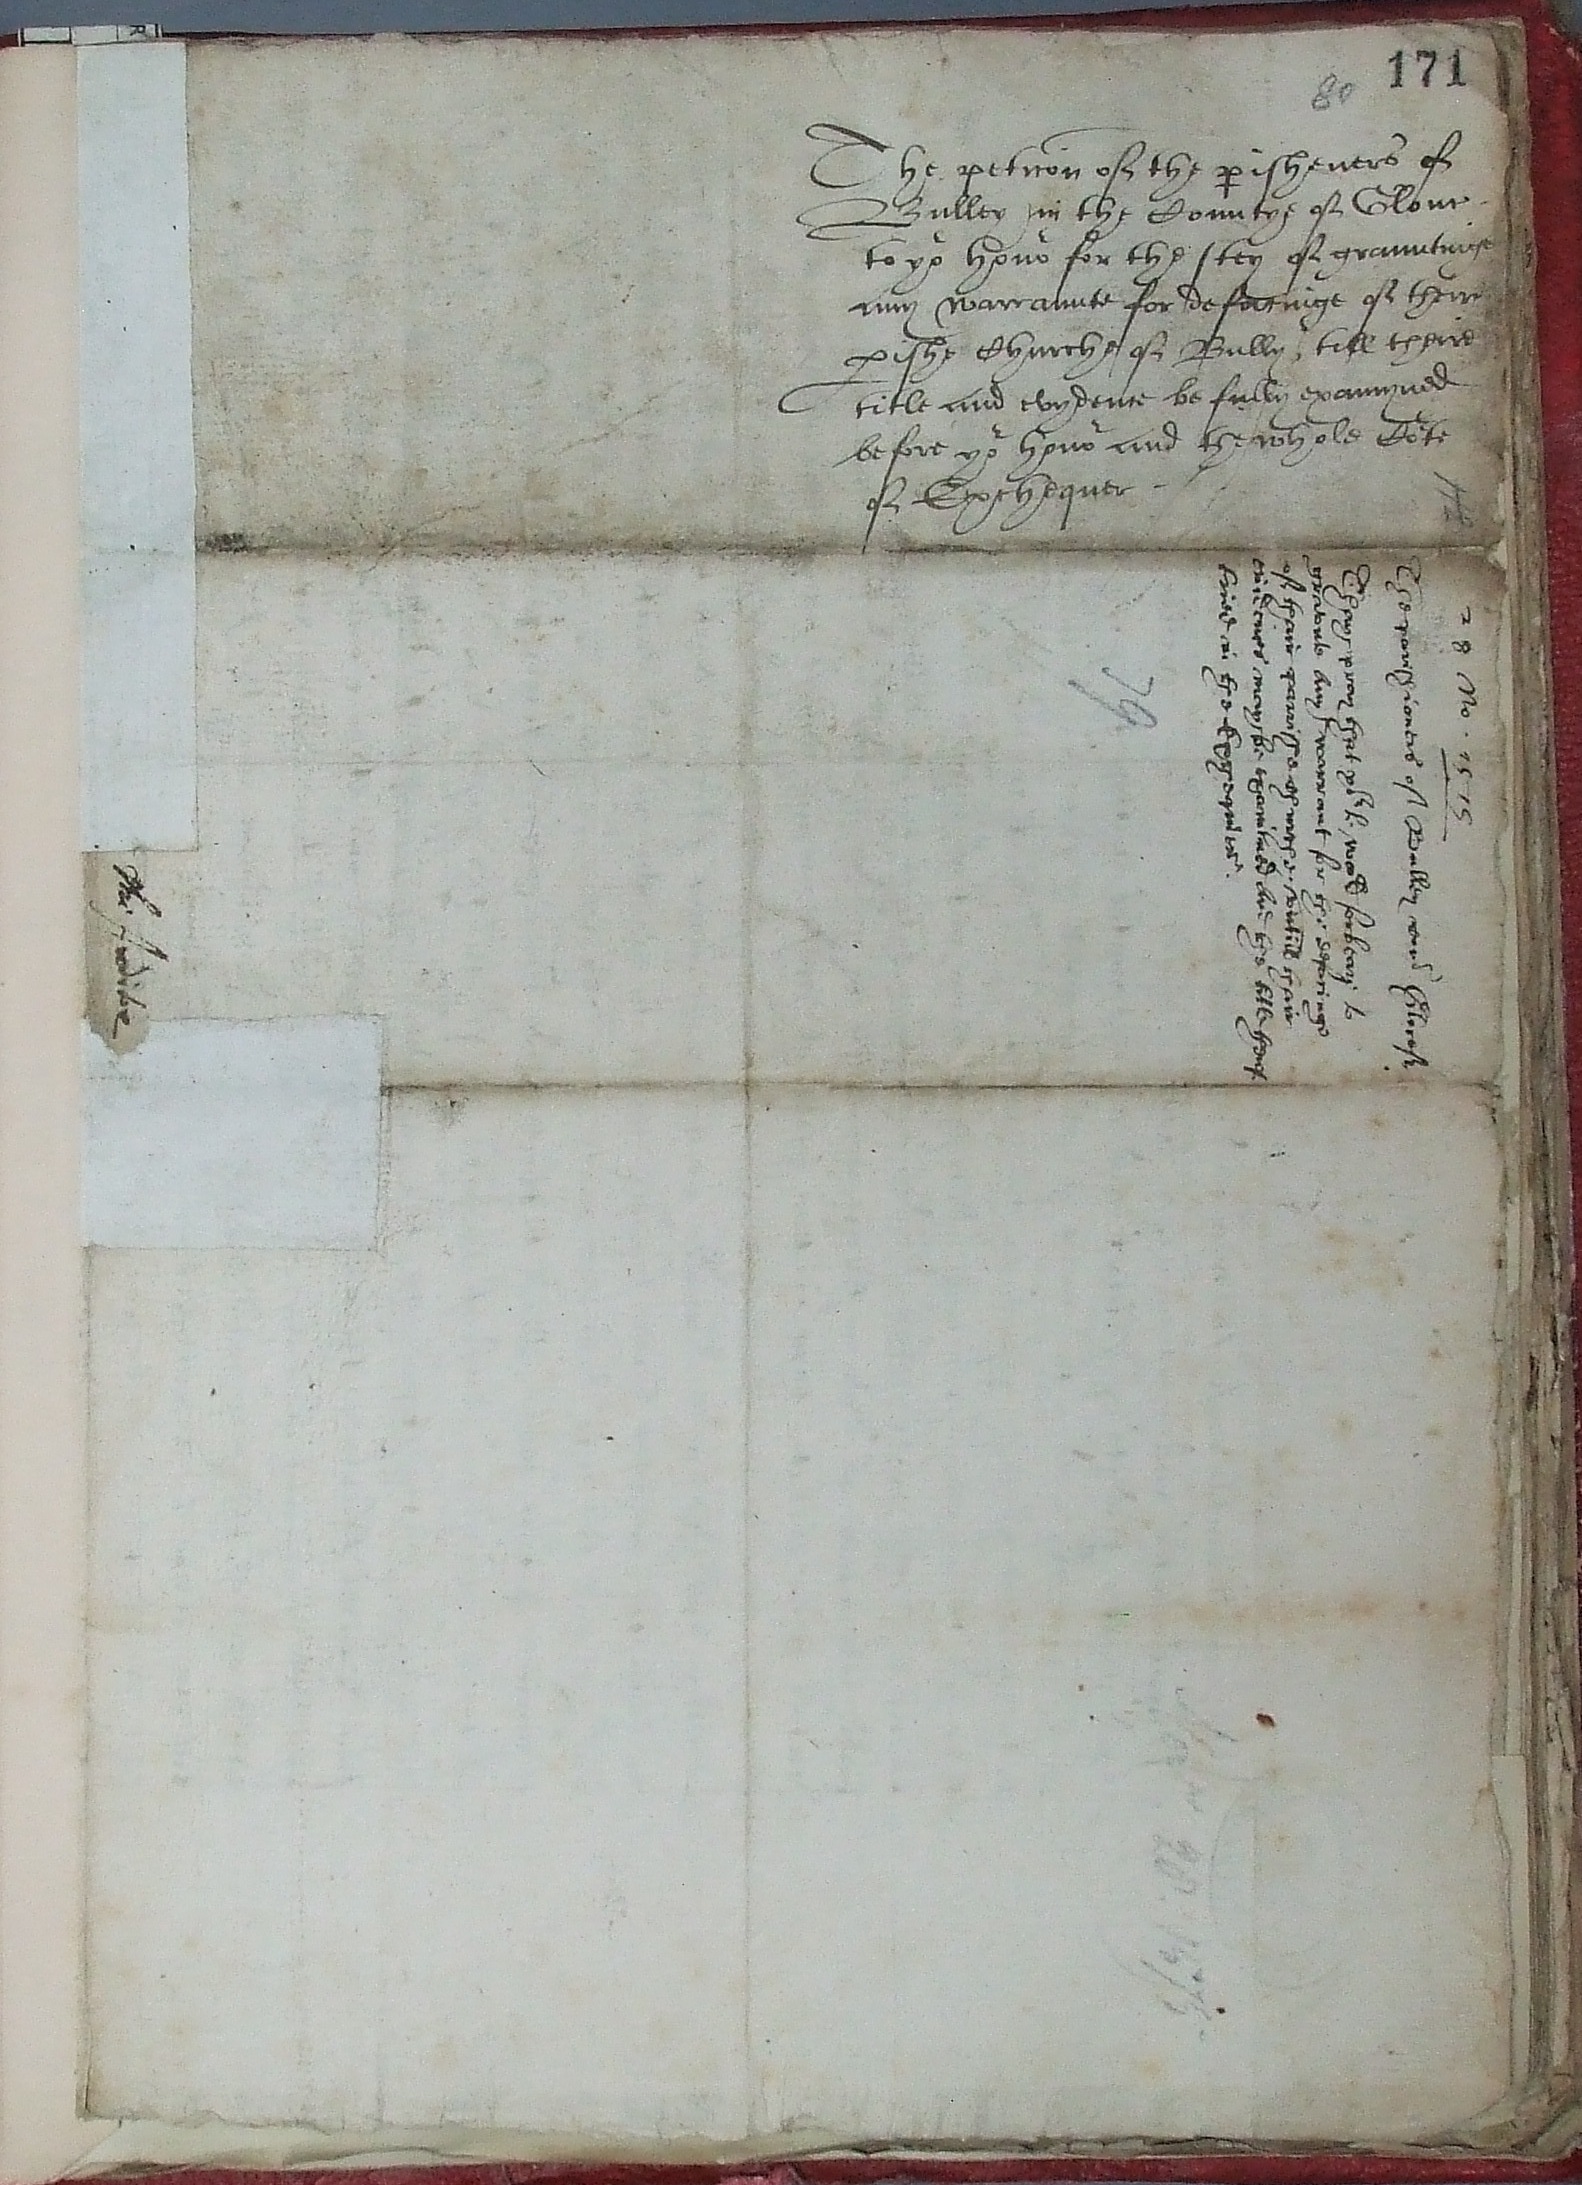 171
80
The peticõn of the p̱isheners of
Bulley in the Countye of Glouc
to yor honor for the stey of grauntinge
any warraunte for defacinge of their
p̱ishe Churche of Bully, till theire
title and evydence be fully examyned
before yor honor and the whole Cõte
of Exchequer
28 No. 1575
The parishioners of Bulley
They pray that yor L. wold forbear to
graunte any warrant for the defacinge
of their parrishe churche, untill their
evidences may be examined and the title therof
tried in the Exchequier.
79